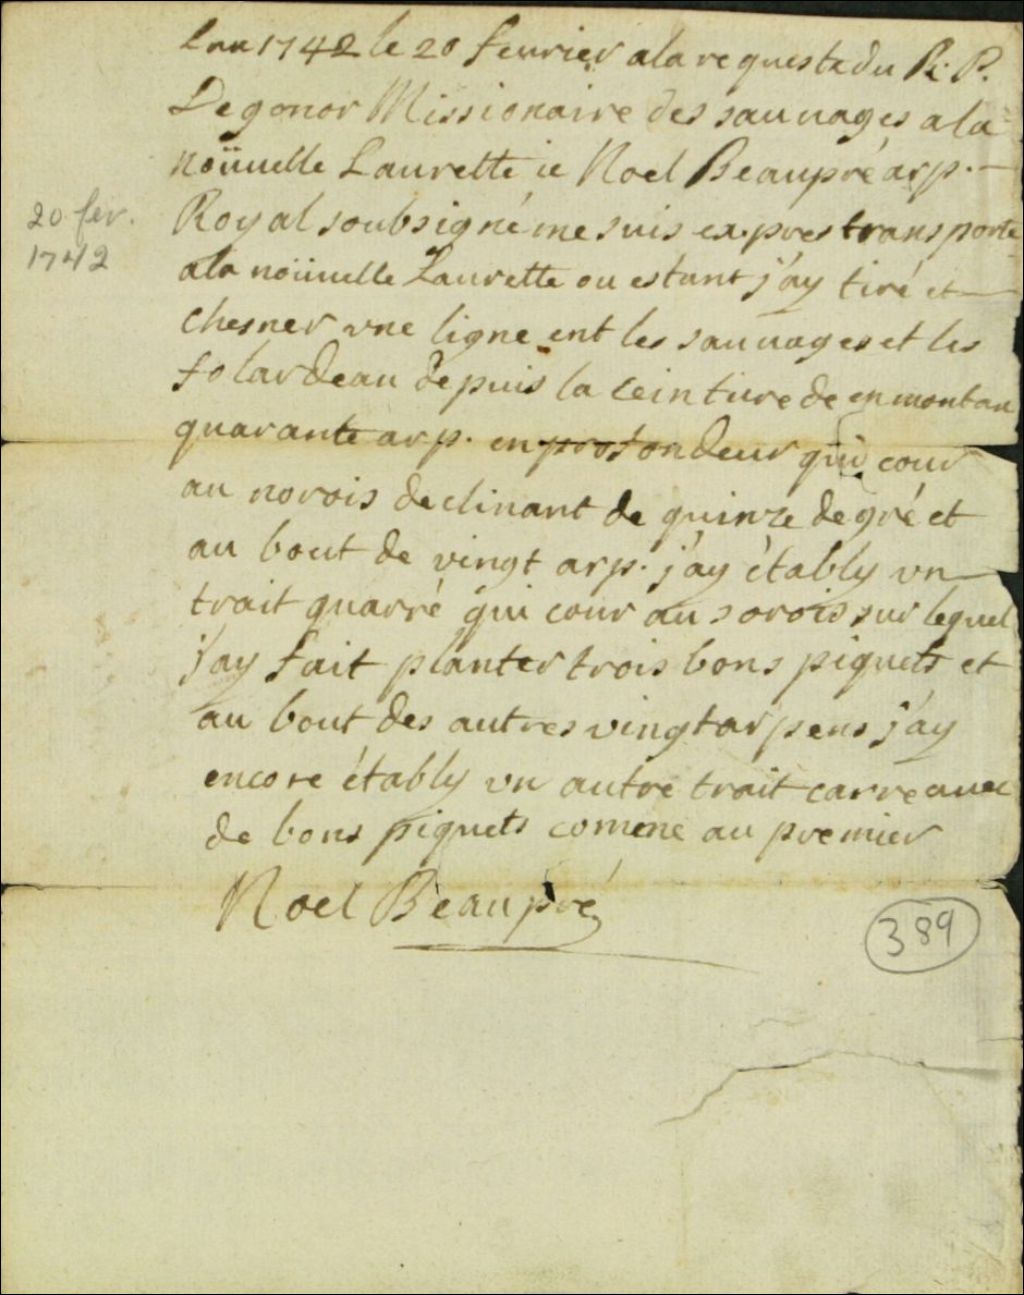 Lan 1742 le 20 feurier a la requeste du R. P.
Degonor Missionaire des sauuages a la
noüuelle Laurette ie Noel Beaupré arp.
20 fer.
1742
Royal soubsigné me suis expres transporte
a la noüuelle Laurette ou estant j'ay tiré et
chesner vne ligne ent les sauuages et les
folardeau depuis la ceinture de en montan
quarante arp. en profondeur qui cour
au norois declinant de quinze degré et
au bout de vingt arp. j'ay étably vn
trait quarré qui cour au sorois sur lequel
j'ay fait planter trois bons piquets et
au bout des autres vingt arpens j'ay
encore étably vn autre trait carre auec
de bons piquets comme au premier
Noel Beaupré
389